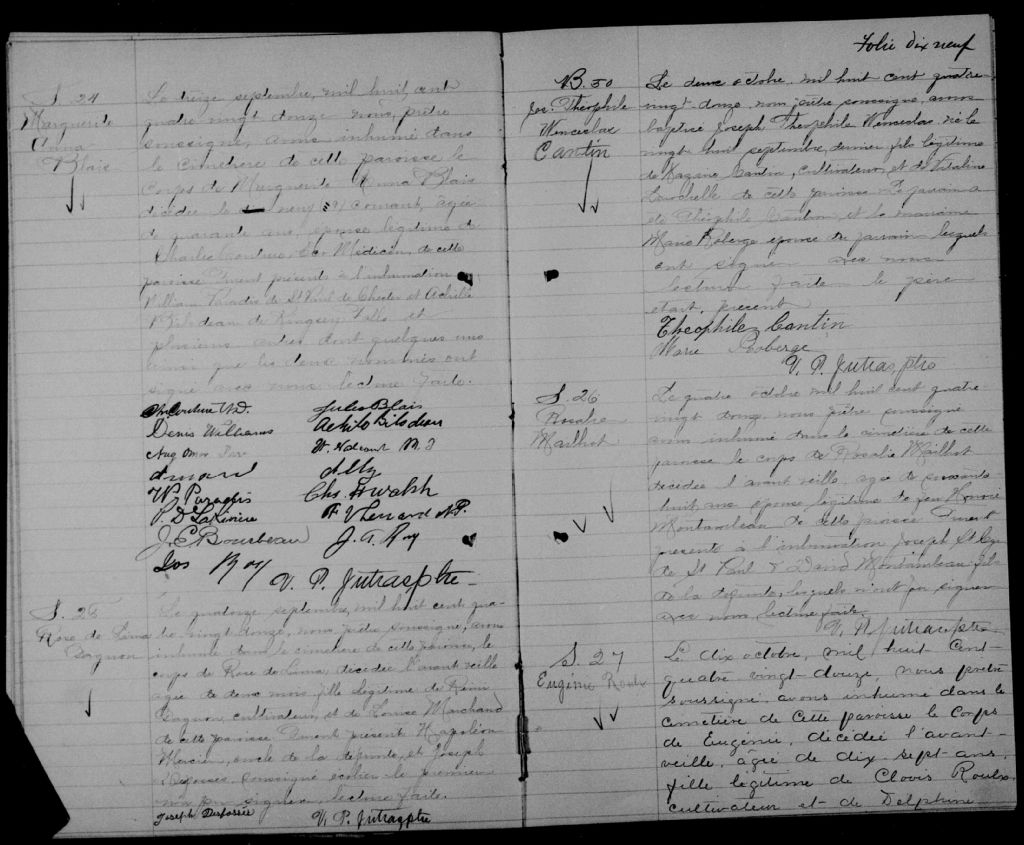 S. 24
Marguerite
Anna
Blais
Le treize septembre, mil huit cent
quatre vingt douze nous, prêtre
soussigné, avons inhumé dans
le cimetière de cette paroisse le
corps de Marguerite Anna Blais
décédée le neuf courant, agée
de quarante ans, épouse légitime de
Charles Couture, Ecr Médecin, de cette
paroisse Furent présents à l'inhumation
William Paradis de St Paul de Chester et Achille
Bilodeau de Kingsey Falls et
plusieurs autres dont quelques uns
ainsi que les deux nommés ont
signé avec nous lecture faite.
Ch. Couture M.D. Jules Blais
Denis Williams Achile Bilodeau
Aug
W
J. E. Bourbeau J. A. Roy
Chs. Walsh
Jos Roy V. P. Jutras ptre
Rose de Lima
Gagnon
Le quatorze septembre, mil huit cent qua-
tre vingt douze, nous, prêtre soussigné, avons
inhumé dans le cimetière de cette paroisse, le
corps de Rose de Lima, décédée l'avant veille
agée de deux mois fille légitime de Rémi
Gagnon, cultivateur, et de Louise Marchand
de cette paroisse Furent présents Napoléon
Mercier, oncle de la défunte, et Joseph
soussigné écolier le premier
n'a pu signer, lecture faite.
Joseph V. P. Jutras ptre
Folio dix neuf
B. 50
Jos. Théophile
Wenceslas
Cantin
Le deux octobre, mil huit cent quatre-
vingt douze, nous prêtre soussigné, avons
baptisé Joseph Théophile Wenceslas né le
vingt huit septembre dernier fils légitime
de Nazaire Cantin, cultivateur, et de Vitaline
de cette paroisse Le parrain a
été Théophile Cantin et la marraine
Marie Roberge épouse du parrain lesquels
ont signé avec nous
lecture faite le père
était présent
Theophile Cantin
Marie Roberge
V. P. Jutras, ptre
S. 26
Rosalie
Mailhot
Le quatre octobre mil huit cent quatre-
vingt douze nous prêtre soussigné
avons inhumé dans le cimetière de cette
paroisse le corps de Rosalie Mailhot
décédée l'avant veille, agée de soixante
huit ans épouse légitime de feu
Montambeau de cette paroisse Furent
présents à l'inhumation Joseph St
de St Paul & David Montambeau fils
de la défunte, lesquels n'ont pu signer
avec nous, lecture faite.
V. P. Jutras ptre
S. 27
Eugénie Roulx
Le dix octobre, mil huit cent-
quatre vingt-douze, nous prêtre
soussigné avons inhumé dans le
cimetière de cette paroisse le corps
de Eugénie, décédée l'avant-
veille, agée de dix sept-ans,
fille légitime de Clovis Roulx
cultivateur et de Delphine